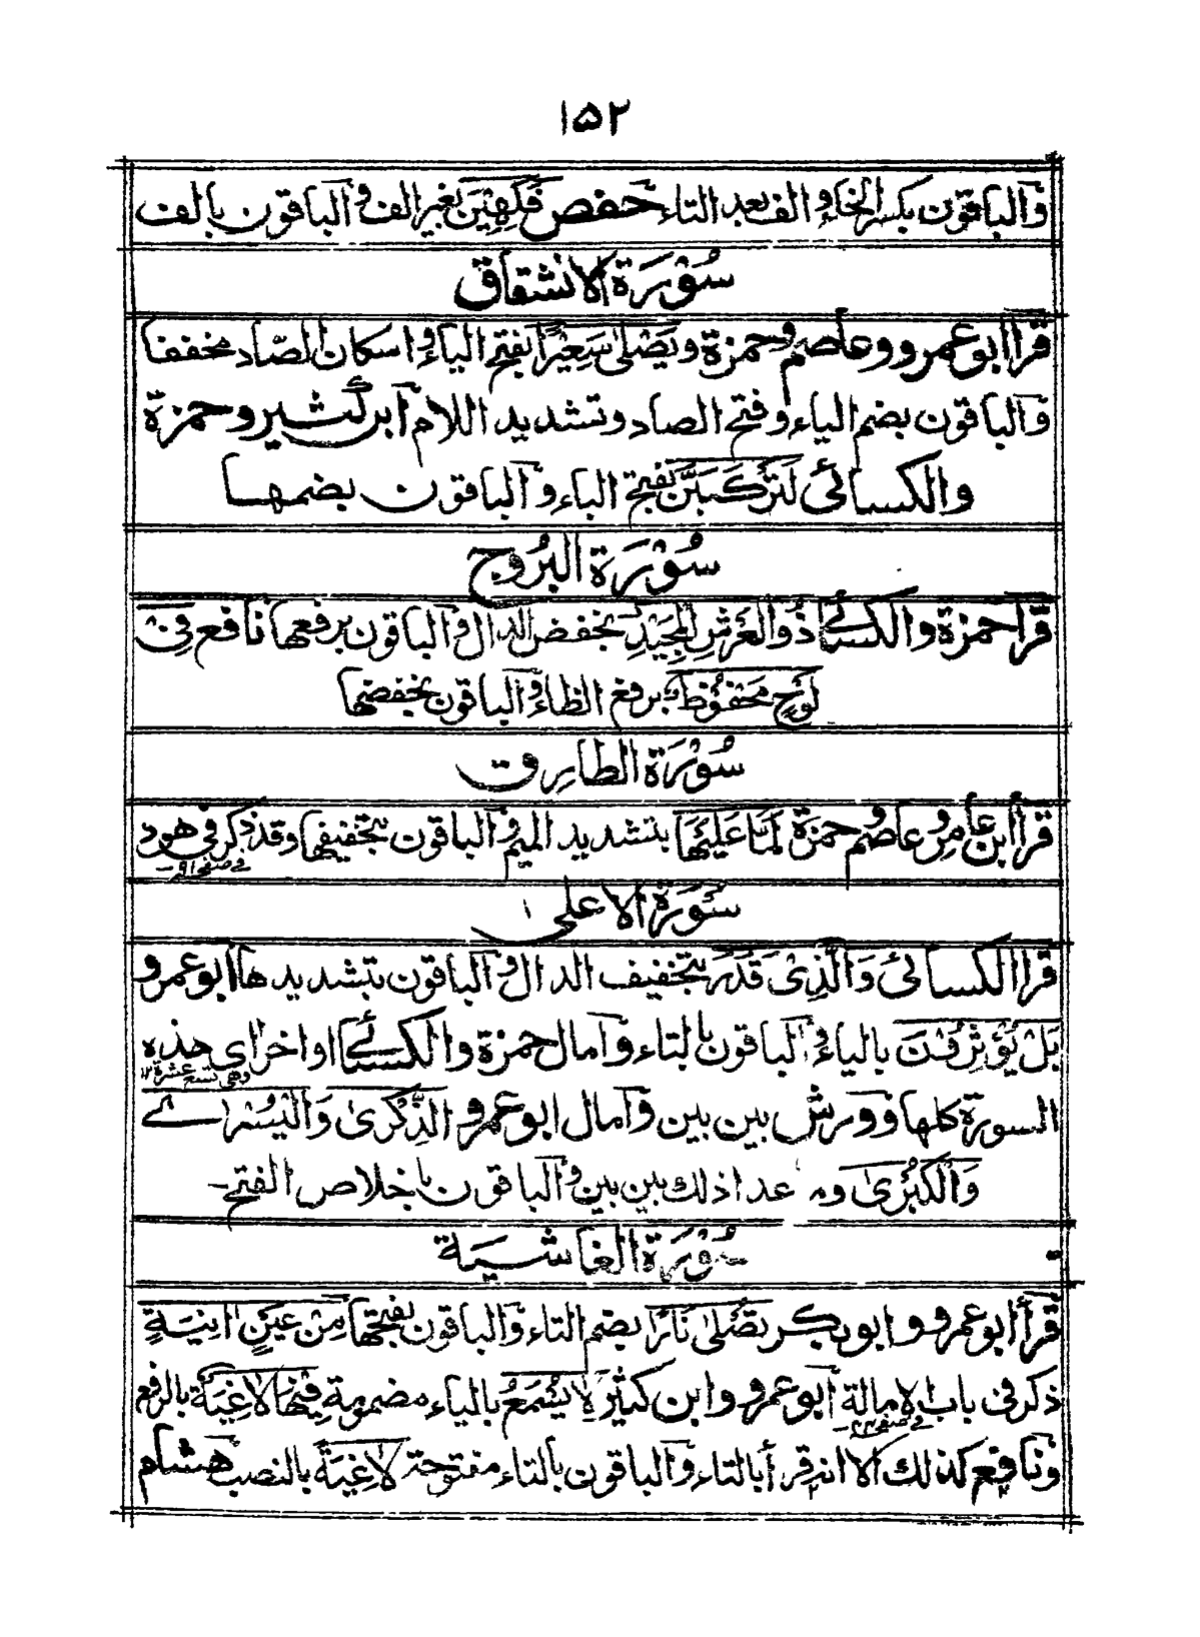 ١٥٢
والباقون بكسر الخاء والف بعد التاء حفص فَكِهِيْنَ بغير الف والباقون بالف
سُوْرَةُ الانشقاق
قرأ ابو عمرو وعاصم وحمزة ويَصْلٰى سَعِيْرًا بفتح الياء واسكان الصاد مخففا
والباقون بضم الياء وفتح الصاد وتشديد اللام ابن كثير وحمزة
والكسائى لَتَرْكَبَنَّ بفتح الباء والباقون بضمها
سُوْرَة البُرُوج
قرأ حمزة والكسائے ذُو الْعَرْشِ الْمَجِيْدِ بخفض الدال والباقون برفعها نافع فِىْ
لَوْحٍ مَحْفُوْظٌ برفع الظاء والباقون بخفضها
سُوْرَة الطارِق
قرأ ابن عامر وعاصم وحمزة لَمَّا عَلَيْهَا بتشديد الميم والباقون بتخفيفها وقد ذكر فى هود
فے صفہ ٩١
سُوْرَة الاعلى
قرا الكسائى وَالَّذِىْ قَدَرَ بتخفيف الدال والباقون بتشديدها ابو عمرو
بَلْ يُؤْثِرُوْنَ بالياء والباقون بالتاء وامال حمزة والكسائے اواخر اى هذه
وهى تسع عشرة ١٢
السورة كلها وورش بين بين وامال ابو عمرو الذِّكْرٰى وَالْيُسْرٰے
وَالْكُبْرٰى وما عدا ذلك بين بين والباقون باخلاص الفتح
سُوْرَة الغاشيَة
قرأ ابو عمرو وابو بكر تُصْلٰى نَارًا بضم التاء والباقون بفتحها مِنْ عَيْنٍ اٰنِيَةٍ
ذكر فى باب الامالة ابو عمرو وابن كثير لَا يُسْمَعُ بالياء مضمومة فِيْهَا لَاغِيَةٌ بالرفع
فے صفہ ٤٢
ونافع كذلك الا انه قرأ بالتاء والباقون بالتاء مفتوحة لَاغِيَةً بالنصب هشام